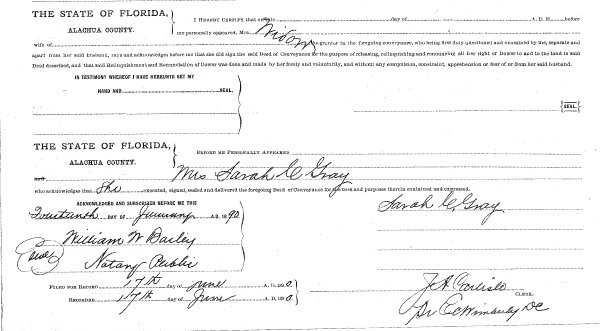 THE STATE OF FLORIDA,
ALACHUA COUNTY.
I HEREBY CERTIFY that on this day of A. D. 18 before
me personally appeared, Mrs. Widow
wife of the grantor in the foregoing conveyance, who being first duly questioned and examined by me, separate and
apart from her said husband, says and acknowledges before me that she did sign the said Deed of Conveyance for the purpose of releasing, relinquishing and renouncing all her right of Dower in and to the land in said
Deed described, and that said Relinquishment and Renunciation of Dower was done and made by her freely and voluntarily, and without any compulsion, constraint, apprehension or fear of or from her said husband.
IN TESTIMONY WHEREOF I HAVE HEREUNTO SET MY
HAND AND SEAL.
SEAL.
THE STATE OF FLORIDA,
ALACHUA COUNTY.
BEFORE ME PERSONALLY APPEARED
Mrs Sarah C Gray
who acknowledges that She executed, signed, sealed and delivered the foregoing Deed of Conveyance for the uses and purposes therein contained and expressed.
ACKNOWLEDGED AND SUBSCRIBED BEFORE ME THIS
Fourteenth DAY OF January A.D. 1890
Sarah C. Gray
William W Bailey
Seal
Notary Public
FILED FOR RECORD 17th day of June A. D. 1890.
RECORDED 17th day of June A. D. 1890.
J. A. Carlisle
CLERK.
Pr E C Wimberly DC